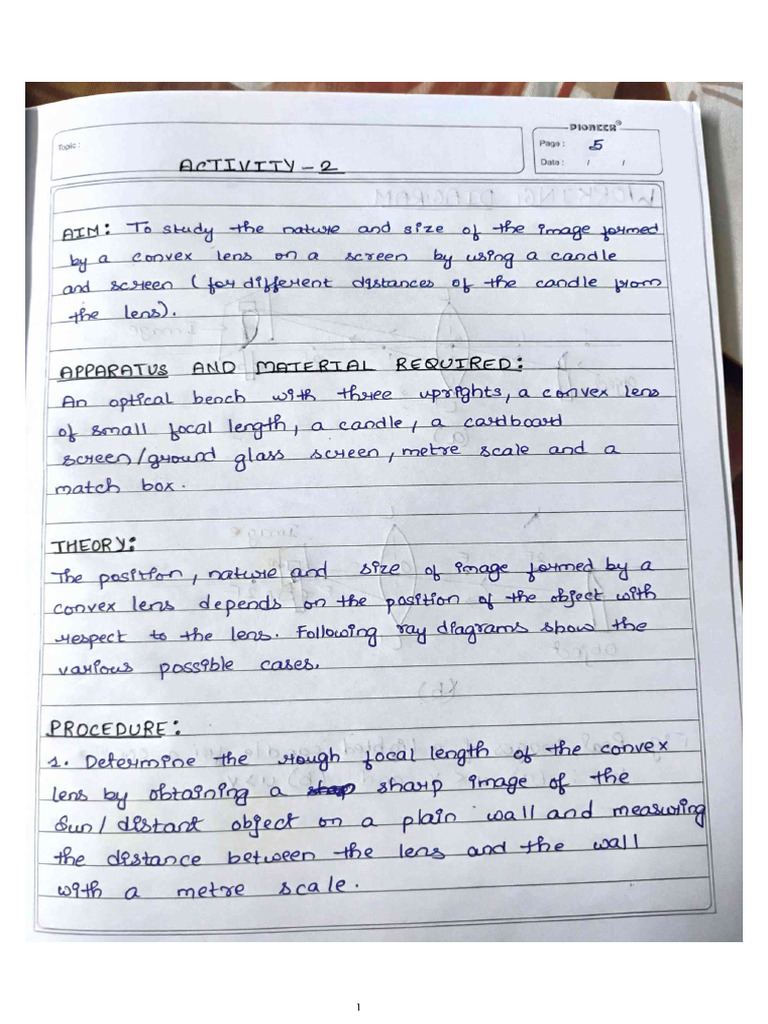 PIONEER®
Topic :
Page : 5
Date : / /
ACTIVITY - 2
AIM: To study the nature and size of the image formed
by a convex lens on a screen by using a candle
and screen (for different distances of the candle from
the lens).
APPARATUS AND MATERIAL REQUIRED:
An optical bench with three uprights, a convex lens
of small focal length, a candle, a cardboard
screen/ground glass screen, metre scale and a
match box.
THEORY:
The position, nature and size of image formed by a
convex lens depends on the position of the object with
respect to the lens. Following ray diagrams show the
various possible cases.
PROCEDURE:
1. Determine the rough focal length of the convex
lens by obtaining a sharp image of the
Sun/distant object on a plain wall and measuring
the distance between the lens and the wall
with a metre scale.
1